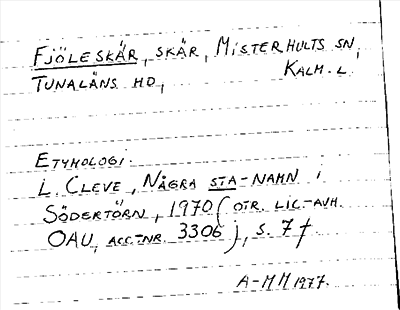 FJÖLESKÄR, SKÄR, MISTERHULTS SN,
TUNALÄNS HD, KALM. L.
ETYMOLOGI:
L. CLEVE, NÅGRA STA-NAMN I
SÖDERTÖRN, 1970 (OTR. LIC.-AVH.
OAU, ACC.-NR. 3306), S. 7 f.
A-MM 1977.